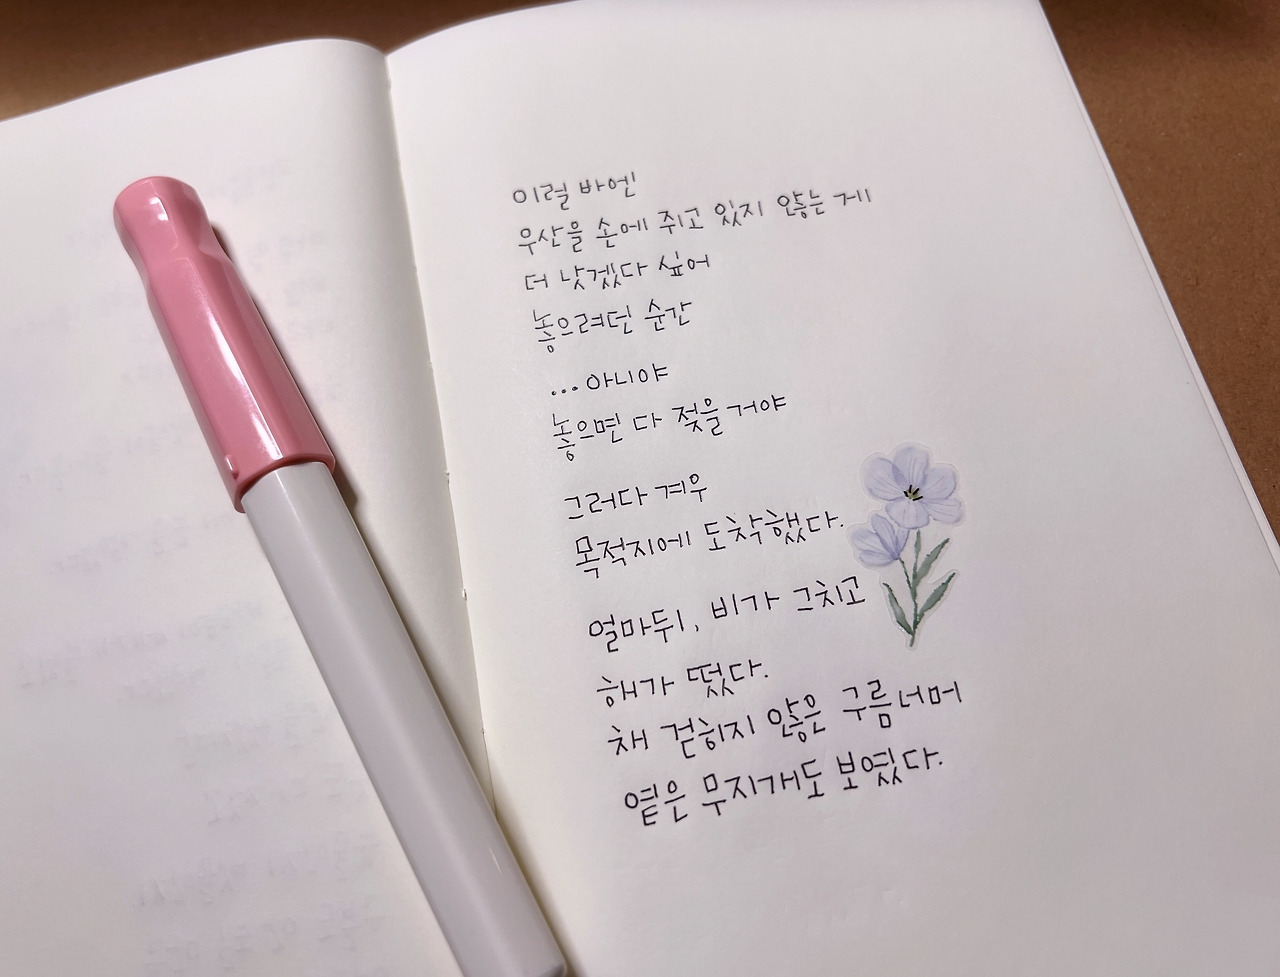 이럴 바엔
우산을 손에 쥐고 있지 않는 게
더 낫겠다 싶어
놓으려던 순간
...아니야
놓으면 다 젖을거야
그러다 겨우
목적지에 도착했다.
얼마뒤, 비가 그치고
해가 떴다.
채 걷히지 않은 구름너머
옅은 무지개도 보였다.